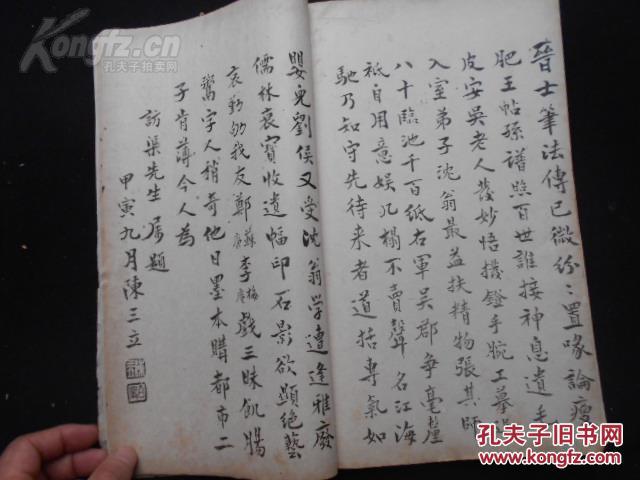 晉士筆法傳已微紛〻置喙論瘦
肥王帖孫譜照百世誰接神息遺
皮安吳老人發妙悟撥鐙手腕工摹
入室弟子沈翁最益扶精物張其師
八十臨池千百紙右軍吳郡爭毫釐
祇自用意娱几榻不賣聲名江海
馳乃知守先待来者道括專氣如
嬰兒劉侯又受沈翁学遭逢雅廢
儒林哀寶收遺幅印石影欲顯絕藝
哀動幼我友鄭蘇庚李梅庵戲三昧飢腸
鬻字人稍奇他日墨本購都市二
子肯薄今人為
訪渠先生属題
甲寅九月陳三立
Kongfz.cn
孔夫子拍卖网
孔夫子旧书网
KONGFZ.COM